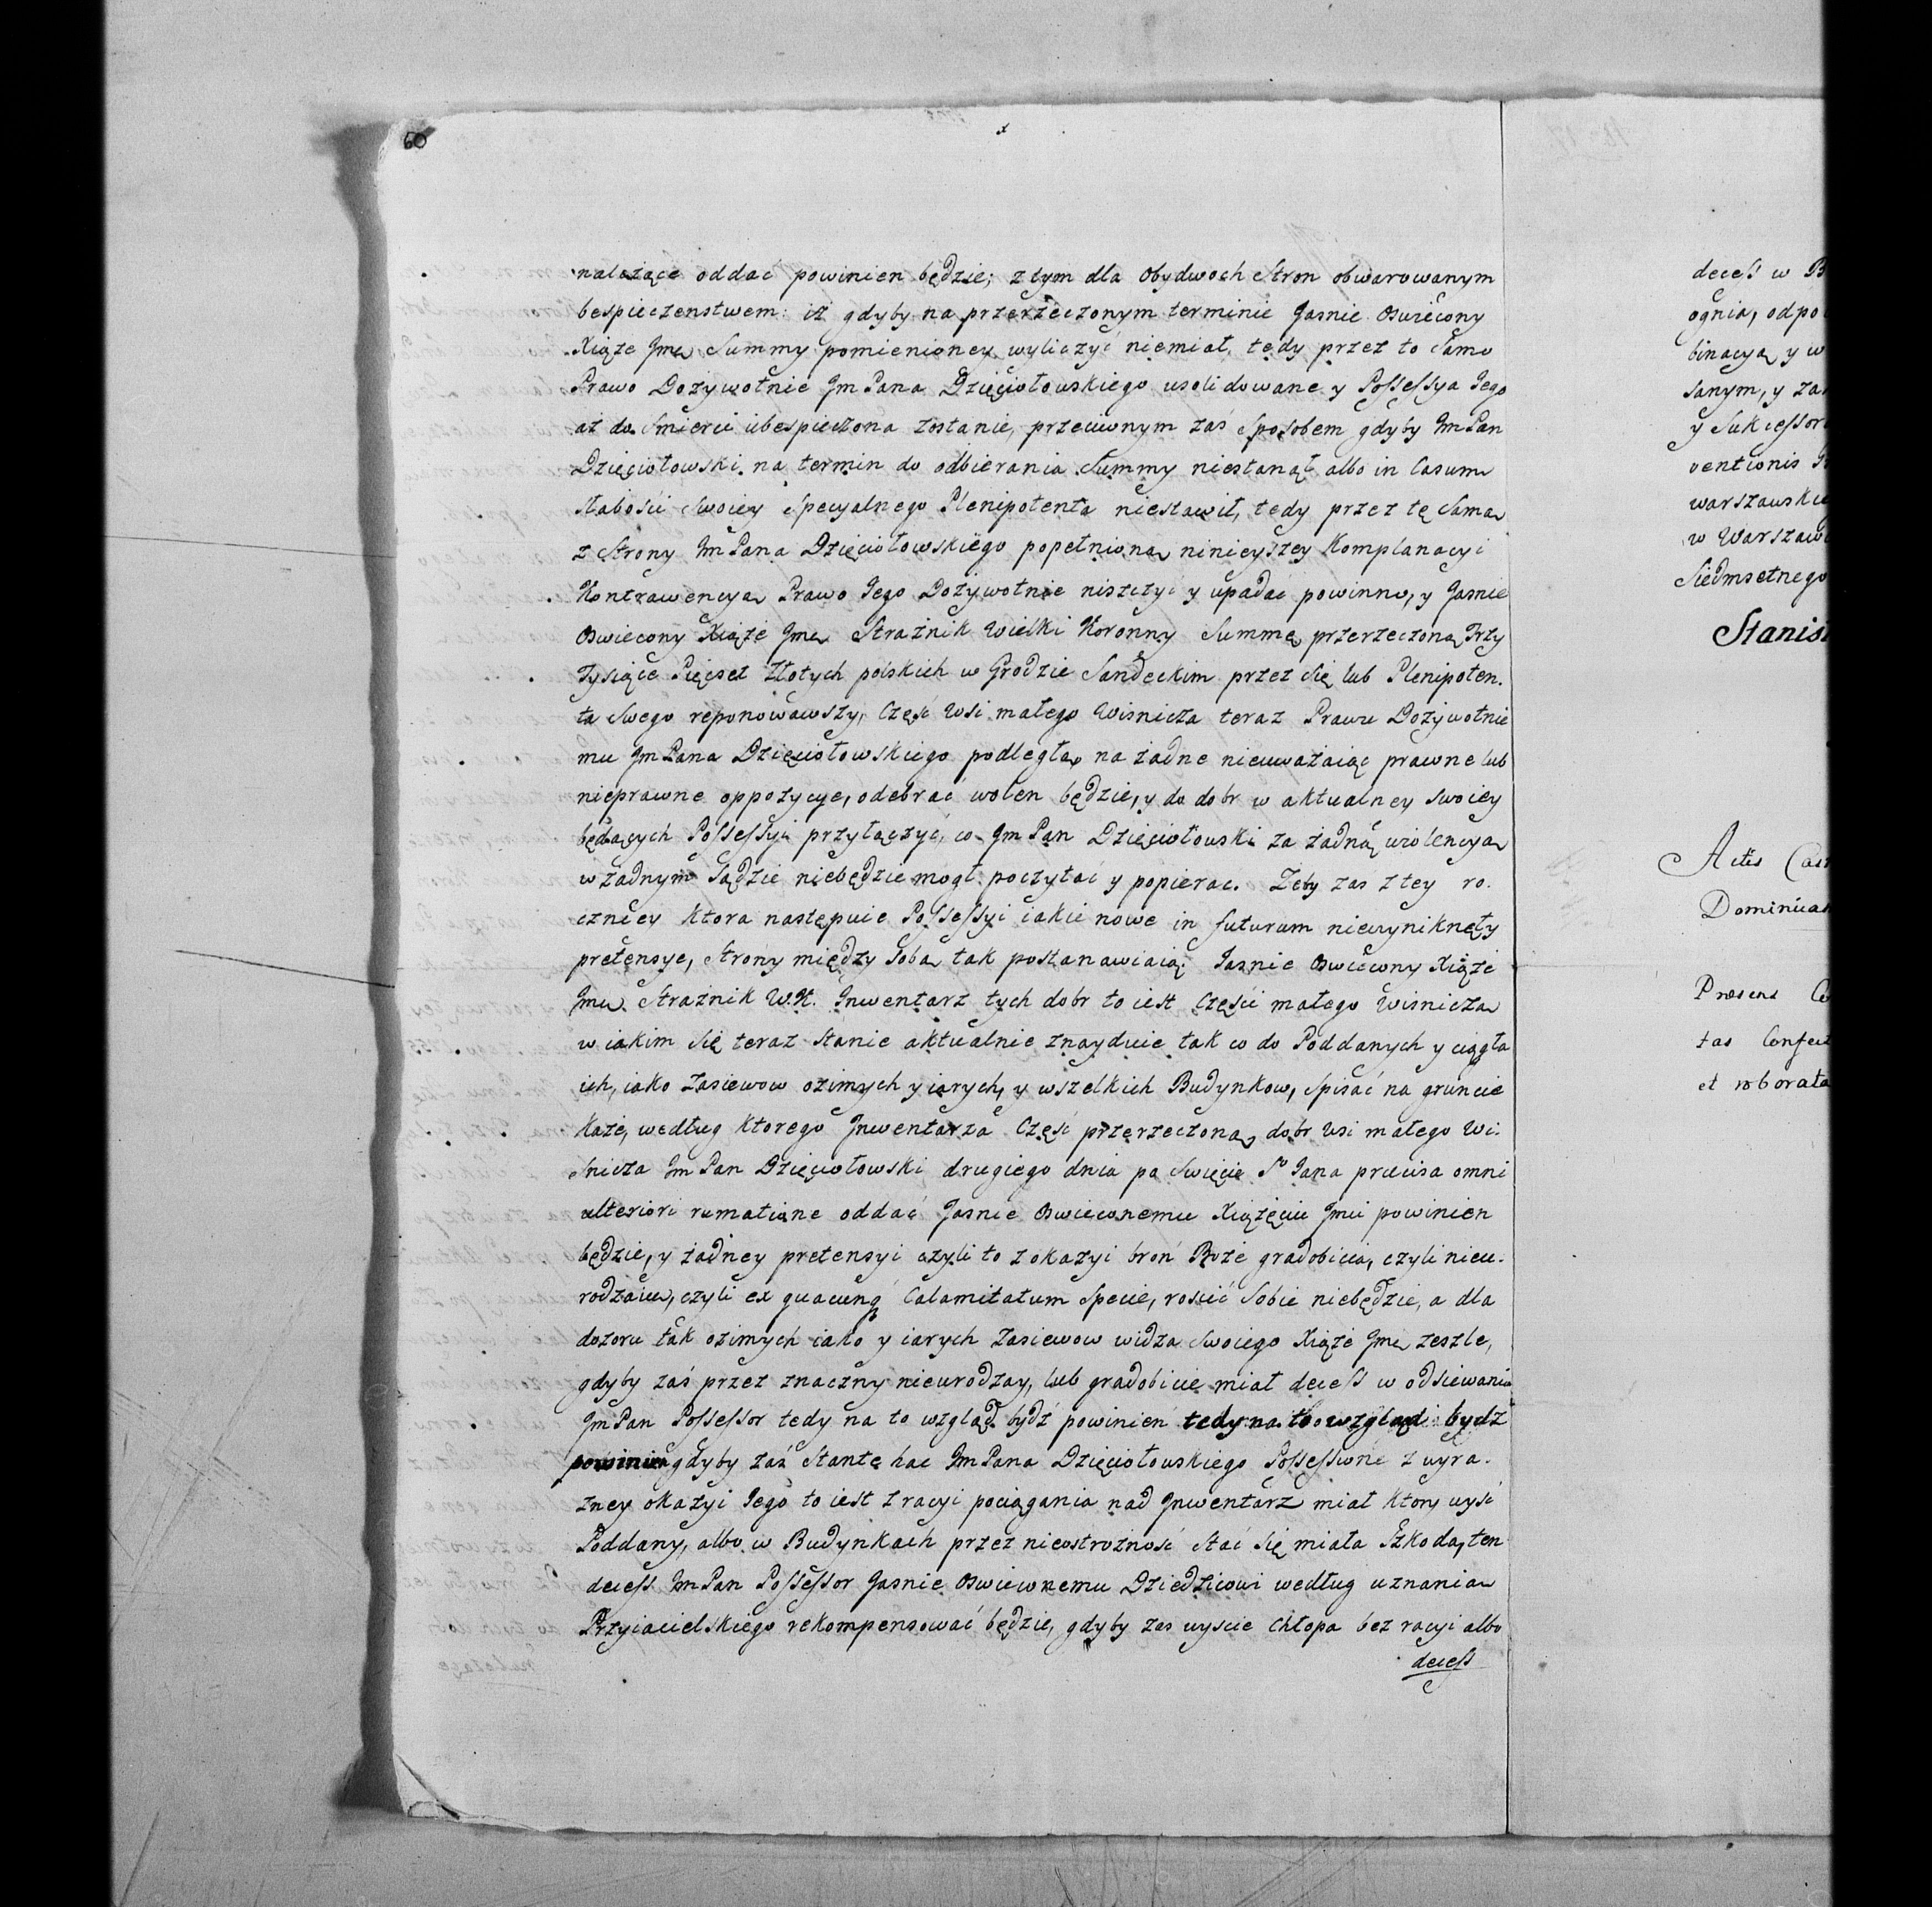 60
należące oddać powinien będzie; z tym dla obydwoch Stron obwarowanym
bespieczenstwem: iż gdyby na przerzeczonym terminie Jasnie Oswiecony
Xiąże Jmć Summy pomienioney wyliczyć niemiał, tedy przez to Samo
Prawo Dożywotnie Jm Pana Dzięciołowskiego usolidowane y Possessya Jego
aż do Smierci ubespieczona zostanie, przeciwnym zaś Sposobem gdyby Jm Pan
Dzięciołowski na termin do odbierania Summy niestanął albo in Casum
Słabości Swoiey Specyalnego Plenipotenta niestawił, tedy przez tę Samą
z Strony Jm Pana Dzięciołowskiego popełnioną ninieyszey Komplanacyi
Kontrawencyą Prawo Jego Dożywotnie niszczyć y upadać powinno, y Jasnie
Oswiecony Xiąże Jmć Strażnik Wielki Koronny Summę przerzeczoną Trzy
Tysiące Pięcset Złotych polskich w Grodzie Sandeckim przez Się lub Plenipoten.
ta Swego reponowawszy, Częsć Wsi małego Wisnicza teraz Prawu Dożywotnie
mu Jm Pana Dzięciołowskiego podległą, na żadne nieuważaiąc prawne lub
nieprawne oppozycye, odebrać wolen będzie, y do dobr w aktualney Swoiey
będących Possessyi przyłączyć, co Jm Pan Dzięciołowski za żadną wiolencyą
w żadnym Sądzie niebędzie mogł poczytać y popierac. Żeby zas z tey ro.
czniey ktora następuie Possessyi iakie nowe in futurum niewyniknęły
pretensye, Strony między Sobą tak postanawiaią: Jasnie Oswiecony Xiąże
Jmć Strażnik W.K. Jnwentarz tych dobr to iest Częsci małego Wisnicza
w iakim Się teraz Stanie aktualnie znayduie tak co do Poddanych y ciągła
ich, iako Zasiewow ozimych y iarych, y wszelkich Budynkow, Spisać na gruncie
każe, według ktorego Jnwentarza Częsć przerzeczoną dobr Wsi małego Wi:
Snicza Jm Pan Dzięciołowski drugiego dnia po Swięcie So Jana præcisa omni
ulteriori rumatione oddać Jasnie Oswieconemu Xiążęciu Jmci powinien
będzie, y żadney pretensyi czyli to z okazyi broń Boże gradobicia, czyli nieu.
rodzaiu, czyli ex quacunq Calamitatum Specie, roscić Sobie niebędzie, a dla
dozoru tak ozimych iako y iarych Zasiewow widza Swoiego Xiąże Jmć zeszle,
gdyby zaś przez znaczny nieurodzay, lub gradobicie miał decess w odsiewaniu
Jm Pan Possessor tedy na to wzgląd bydź powinien tedy na to wzgląd bydz
powinien gdyby zaś Stante hac Jm Pana Dzięciołowskiego Possessione z wyra.
zney okazyi Jego to iest z racyi pociągania nad Jnwentarz miał ktory wysć
Poddany, albo w Budynkach przez nieostrożnosć Stać Się miała Szkoda, ten
decess Jm Pan Possessor Jasnie Oswieconemu Dziedzicowi według uznania
Przyiacielskiego rekompensować będzie, gdyby zas wyscie Chłopa bez racyi albo
decess
decess w B
ognia, odpo
binacyą y w
Sanym, y za
y Sukcessor
ventionis
warszawskie
w Warszaw
Siedmsetnego
Stanis
Actis Cas
Dominica
Præsens Co
tas Confect
et roborata